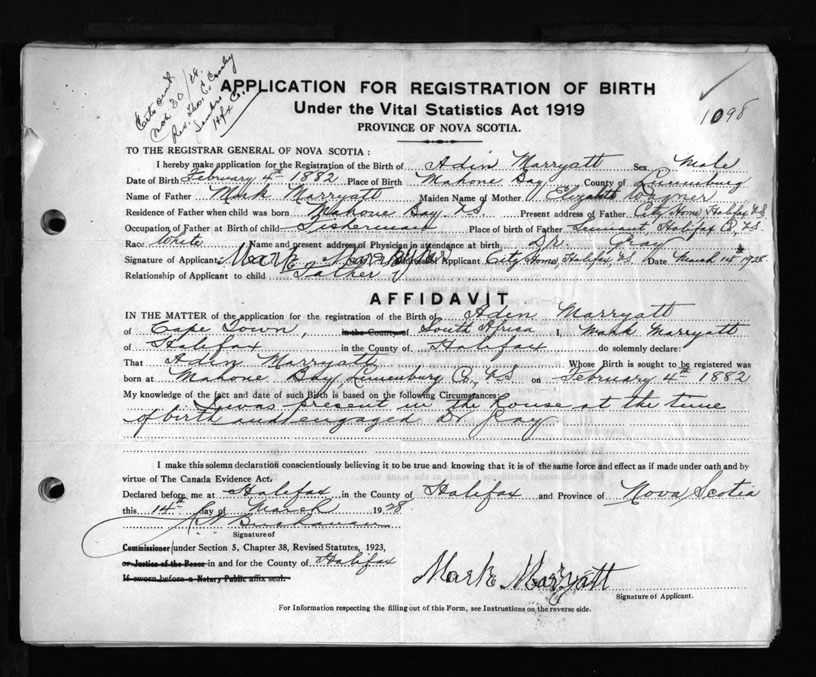 Certs sent
Mar 30/28.
Rev. Thos. C. Crosby
Sambro
Hfx Co.
APPLICATION FOR REGISTRATION OF BIRTH
Under the Vital Statistics Act 1919
PROVINCE OF NOVA SCOTIA.
1098
TO THE REGISTRAR GENERAL OF NOVA SCOTIA :
I hereby make application for the Registration of the Birth of Adin Marryatt Sex Male
Date of Birth February 4th 1882 Place of Birth Mahone Bay County of Lunenburg
Name of Father Mark Marryatt Maiden Name of Mother Elizabeth Wagner
Residence of Father when child was born Mahone Bay N.S. Present address of Father City Home, Halifax N.S.
Occupation of Father at Birth of child Fisherman Place of birth of Father Halifax Co, N.S.
Race White Name and present address of Physician in attendance at birth Dr. Gray
Signature of Applicant Mark Marryatt Address of Applicant City Home, Halifax, N.S. Date March 14th 1928
Relationship of Applicant to child Father
AFFIDAVIT
IN THE MATTER of the application for the registration of the Birth of Aden Marryatt
of Cape Town, in the County of South Africa I, Mark Marryatt
of Halifax in the County of Halifax do solemnly declare:
That Adin Marryatt Whose Birth is sought to be registered was
born at Mahone Bay, Lunenburg Co., N.S. on February 4th 1882
My knowledge of the fact and date of such Birth is based on the following Circumstances:
I was present in the house at the time
of birth and engaged Dr Gray
I make this solemn declaration conscientiously believing it to be true and knowing that it is of the same force and effect as if made under oath and by
virtue of The Canada Evidence Act.
Declared before me at Halifax in the County of Halifax and Province of Nova Scotia
this 14th day of March 1928
Buchanan
Signature of
Commissioner under Section 5, Chapter 38, Revised Statutes, 1923,
or Justice of the Peace in and for the County of Halifax
If sworn before a Notary Public affix seal.
Mark Marryatt
Signature of Applicant.
For Information respecting the filling out of this Form, see Instructions on the reverse side.